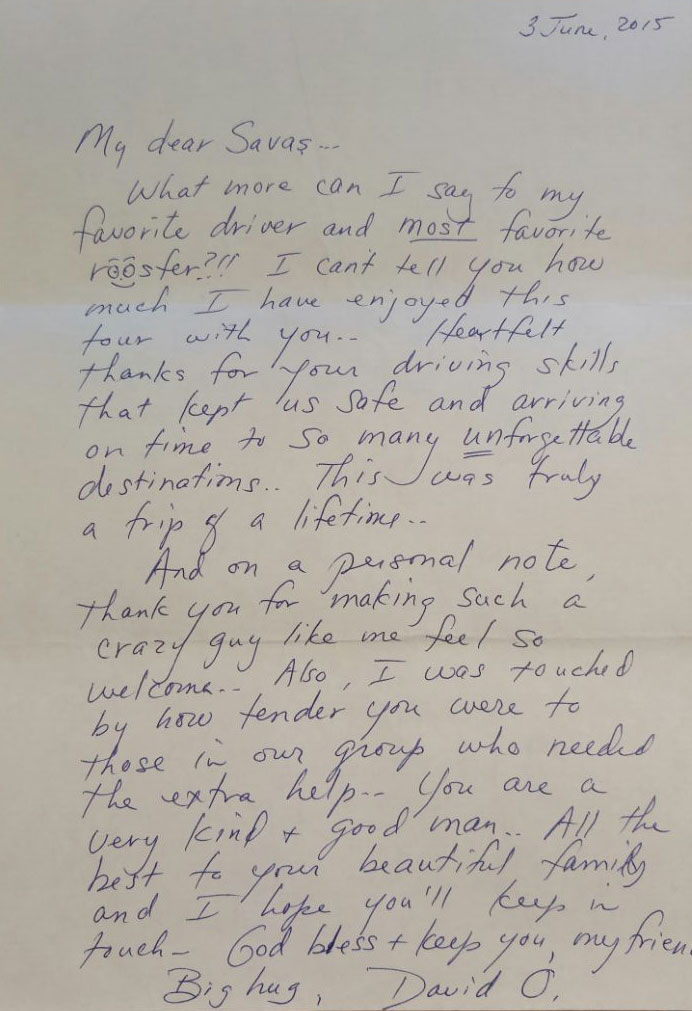 3 June, 2015
My dear Savaş...
What more can I say to my
favorite driver and most favorite
rööster?!! I can't tell you how
much I have enjoyed this
tour with you.. Heartfelt
thanks for your driving skills
that kept us safe and arriving
on time to so many unforgettable
destinations.. This was truly
a trip of a lifetime..
And on a personal note,
thank you for making such a
crazy guy like me feel so
welcome.. Also, I was touched
by how tender you were to
those in our group who needed
the extra help.. You are a
very kind + good man.. All the
best to your beautiful family
and I hope you'll keep in
touch– God bless + keep you, my frien
Big hug, David O.